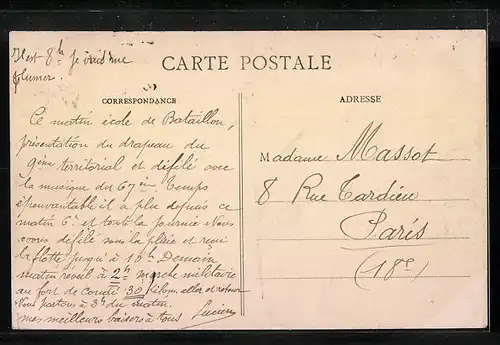 Il est 8h je vais me
plumer.
CARTE POSTALE
CORRESPONDANCE
Ce matin école de Bataillon,
présentation du drapeau du
9ème territorial et défilé avec
la musique du 67ème Temps
épouvantable il a plu depuis ce
matin 6h et toute la journée Nous
avons défilé sous la pluie et reçu
la flotte jusqu'à 10h Demain
matin réveil à 2h marche militaire
au fort de 30 kilom. aller et retour
Nous partons à 3h du matin.
mes meilleurs baisers à tous Lucien
ADRESSE
Madame Massot
8 Rue Tardieu
Paris
(18e)